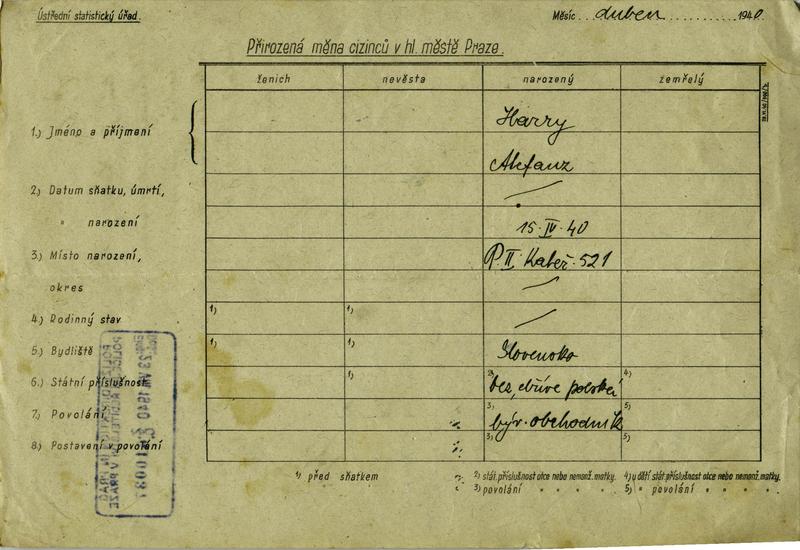 Ústřední statistický úřad.
Měsíc ... duben ... 1940.
Přirozená měna cizinců v hl. městě Praze.
ženich nevěsta narozený zemřelý
1.) Jméno a příjmení Harry
Alefanz
2.) Datum sňatku, úmrtí,
" narození 15. IV. 40
3.) Místo narození, P. II. Kateř. 521
okres
4.) Rodinný stav 1) 1)
5.) Bydliště 1) 1) Slovensko
6.) Státní příslušnost 1) 2) bez, dříve polské 4)
7.) Povolání 3) býv. obchodník 5)
8.) Postavení v povolání 3) 5)
1) před sňatkem
2) stát. příslušnost otce nebo nemanž. matky. 4) u dětí stát. příslušnost otce nebo nemanž. matky.
3) povolání " " " " 5) " povolání " " " "
23 VII 1940